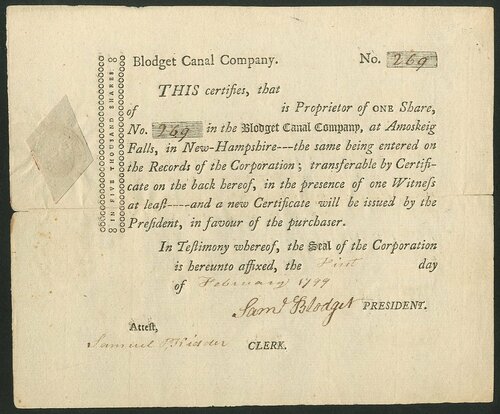 IN FIVE THOUSAND SHARES
Blodget Canal Company. No. 269
THIS certifies, that
of is Proprietor of ONE Share,
No. 269 in the Blodget Canal Company, at Amoskeig
Falls, in New-Hampshire---the same being entered on
the Records of the Corporation; transferable by Certifi-
cate on the back hereof, in the presence of one Witneſs
at leaſt----and a new Certificate will be issued by the
Preſident, in favour of the purchaser.
In Teſtimony whereof, the Seal of the Corporation
is hereunto affixed, the First day
of February 1799
Saml Blodget PRESIDENT.
Atteſt,
Samuel P. Kidder CLERK.